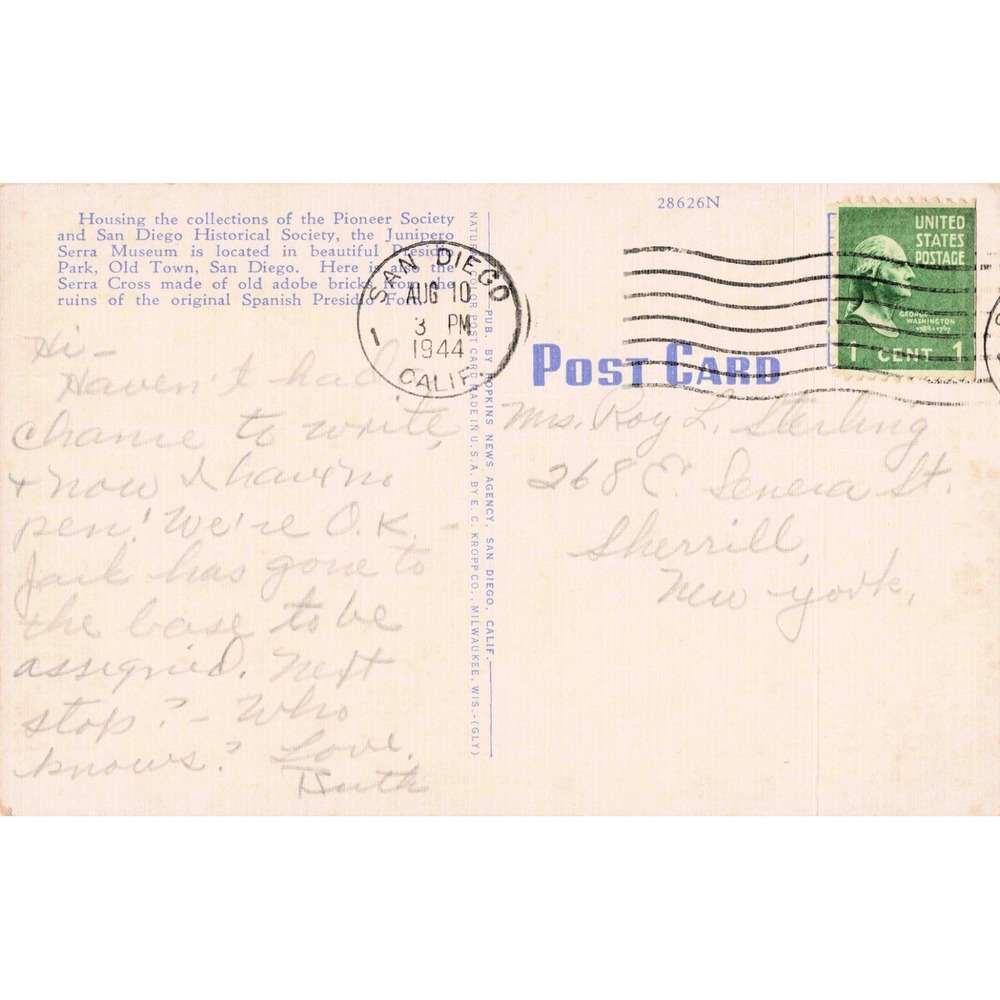 Housing the collections of the Pioneer Society
and San Diego Historical Society, the Junipero
Serra Museum is located in beautiful Presidio
Park, Old Town, San Diego. Here is also the
Serra Cross made of old adobe bricks from the
ruins of the original Spanish Presidio Fort.
Hi-
Haven't had
chance to write,
& now I have no
pen! We're O.K. -
Jack has gone to
the base to be
assigned. Next
stop? - Who
knows? Love.
Ruth
SAN DIEGO
AUG 10
3 PM
1944
1
CALIF.
NATURAL COLOR POST CARD MADE IN U.S.A. BY E. C. KROPP CO., MILWAUKEE, WIS.-(GLY)
PUB. BY HOPKINS NEWS AGENCY, SAN DIEGO, CALIF.
28626N
UNITED
STATES
POSTAGE
GEORGE
WASHINGTON
1789-1797
1 CENT 1
POST CARD
Mrs. Roy L. Sterling
268 E. Seneca St.
Sherrill,
New York.